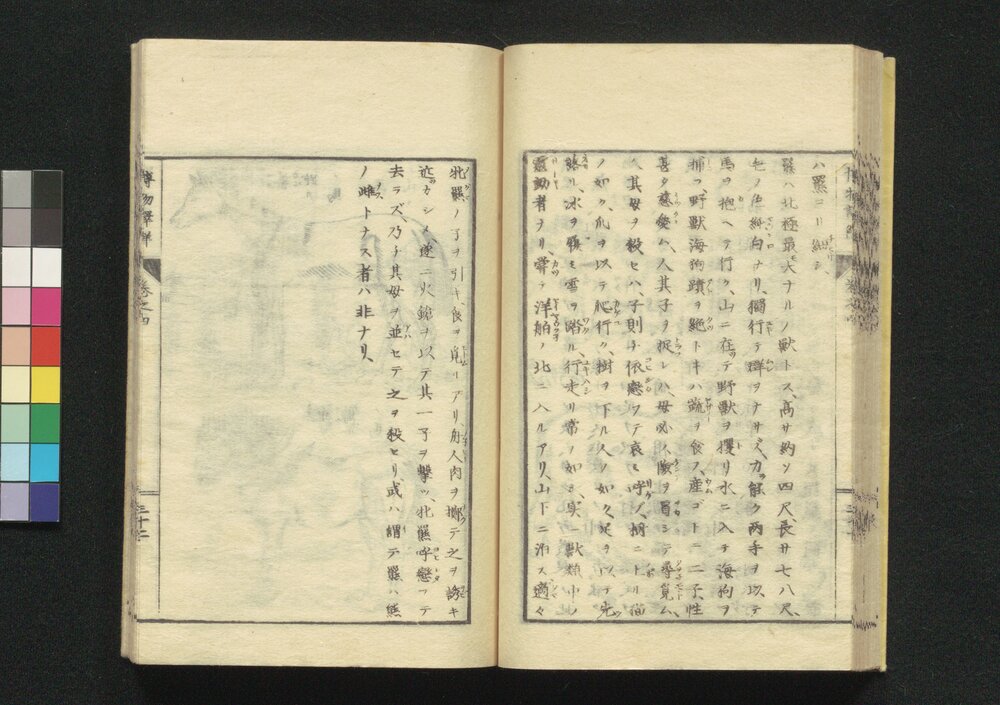 羆ハ北極最大ナルノ獣トス、高サ約ソ四尺長サ七八尺、
毛ノ色純白ナリ、獨行テ群ヲナサズ、力能ク両手ヲ以テ
馬ヲ抱ヘテ行ク、山ニ在テ野獣ヲ攫リ水ニ入テ海狗ヲ
捕フ、野獣海狗蹟ヲ絶トキハ蔬ヲ食フ、産ゴトニ二子、性
甚タ慈愛、人其子ヲ捉レハ、母必ス險ヲ冒シテ尋覓ム、
人其母ヲ殺セハ、子則チ依戀フテ哀ミ呼ブ、樹ニ上リ猫
ノ如ク、爪ヲ以テ爬行ク、樹ヲ下ル人ノ如ク、足ヲ以テ先
氷ヲ履ミ雪ヲ踏ル、行走リ常ノ如シ、獣類中ノ
靈動者ナリ、嘗テ洋舶ノ北ニ入ルアリ、山下ニ泊ス適々
牝羆ノ子ヲ引キ、食ヲ覓ルアリ、舟人肉ヲ擲テ之ヲ誘キ
近カシメ遂ニ火鎗ヲ以テ其一子ヲ撃ツ、牝羆呼戀フテ
去ラズ、乃チ其母ヲ並セテ之ヲ殺セリ或ハ謂テ羆ハ熊
ノ雌トナス者ハ非ナリ
博物
卷之四
三十二